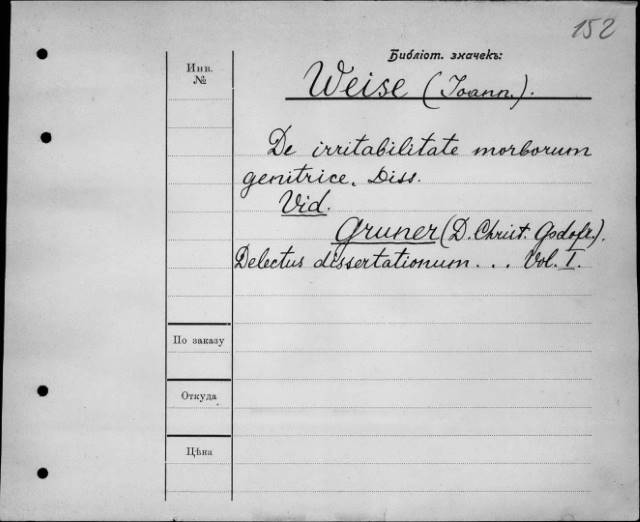 152
Библіот. значекъ:
Инв.
№
Weise (Joann.).
De irritabilitate morborum
genitrice. Diss.
Vid.
Gruner (D. Christ. Godofr.).
Delectus dissertationum... Vol. I.
По заказу
Откуда
Цѣна